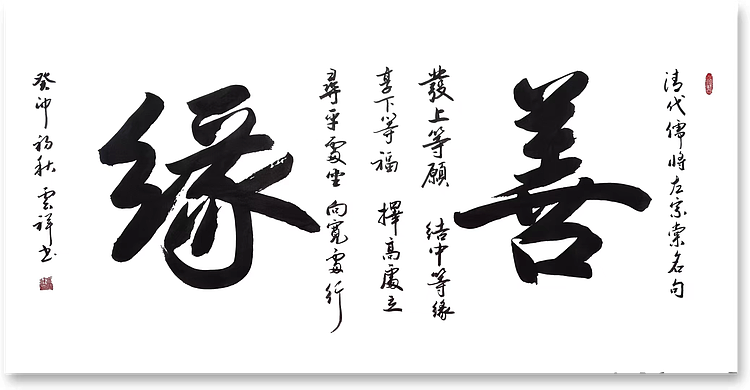 清代儒將左宗棠名句
善
發上等願 結中等緣
享下等福 擇高處立
尋平處坐 向寬處行
緣
癸卯初秋 雲祥書